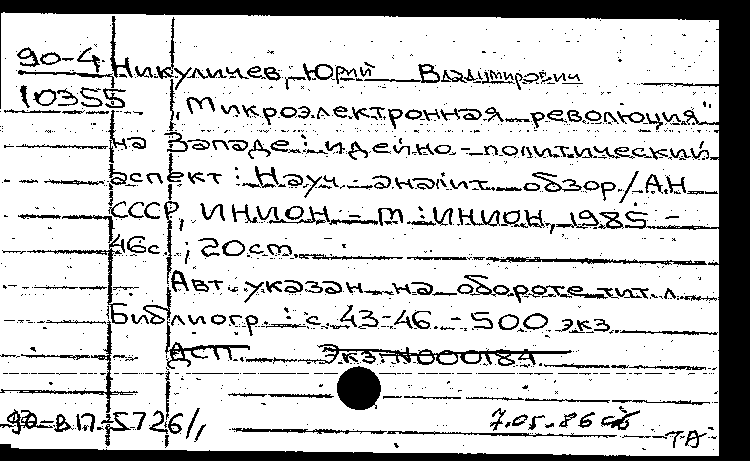 90-4 Никуличев, Юрий Владимирович
10355 "Микроэлектронная революция"
на Западе: идейно-политический
аспект: Науч.-аналит. обзор/АН
СССР, ИНИОН – М: ИНИОН, 1985 –
46с.; 20cm
Авт. указан на обороте тит. л
Библиогр.: с. 43-46. – 500 экз
ДСП. Экз. N000184
90-В17-5726/, 7.05.86
ТА